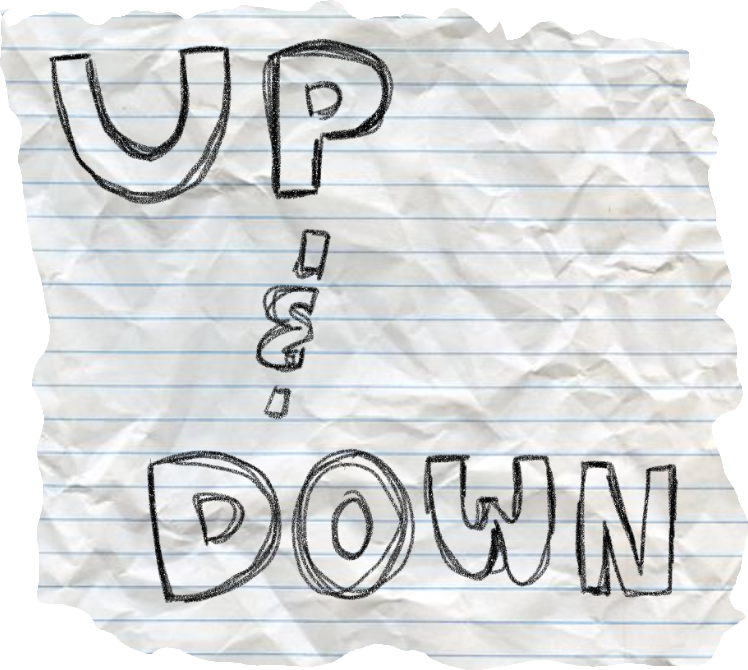 UP
&
DOWN